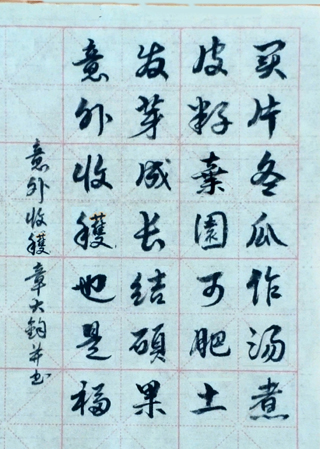 买片冬瓜作汤煮
皮籽弃園可肥土
发芽成长结硕果
意外收穫也是福
意外收穫章大钧并书